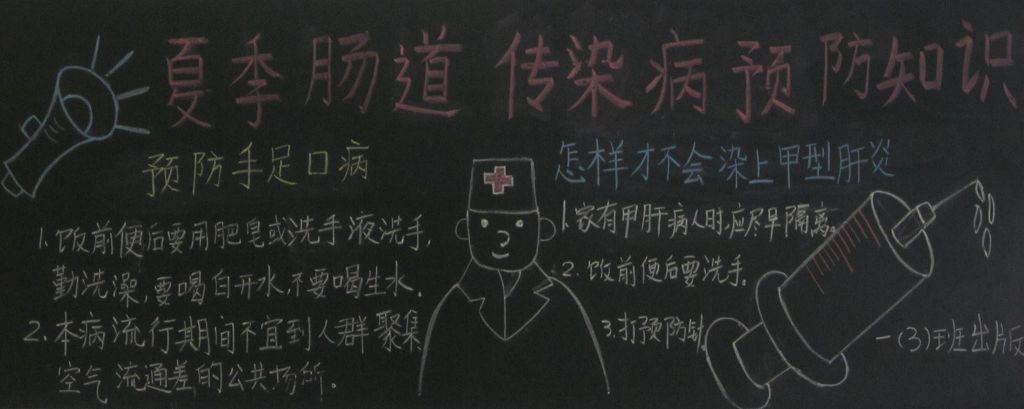 夏季肠道传染病预防知识
预防手足口病
1.饭前便后要用肥皂或洗手液洗手,
勤洗澡,要喝白开水,不要喝生水.
2.本病流行期间不宜到人群聚集
空气流通差的公共场所。
怎样才不会染上甲型肝炎
1.家有甲肝病人时,应尽早隔离。
2.饭前便后要洗手。
3.打预防针
一(3)班出版